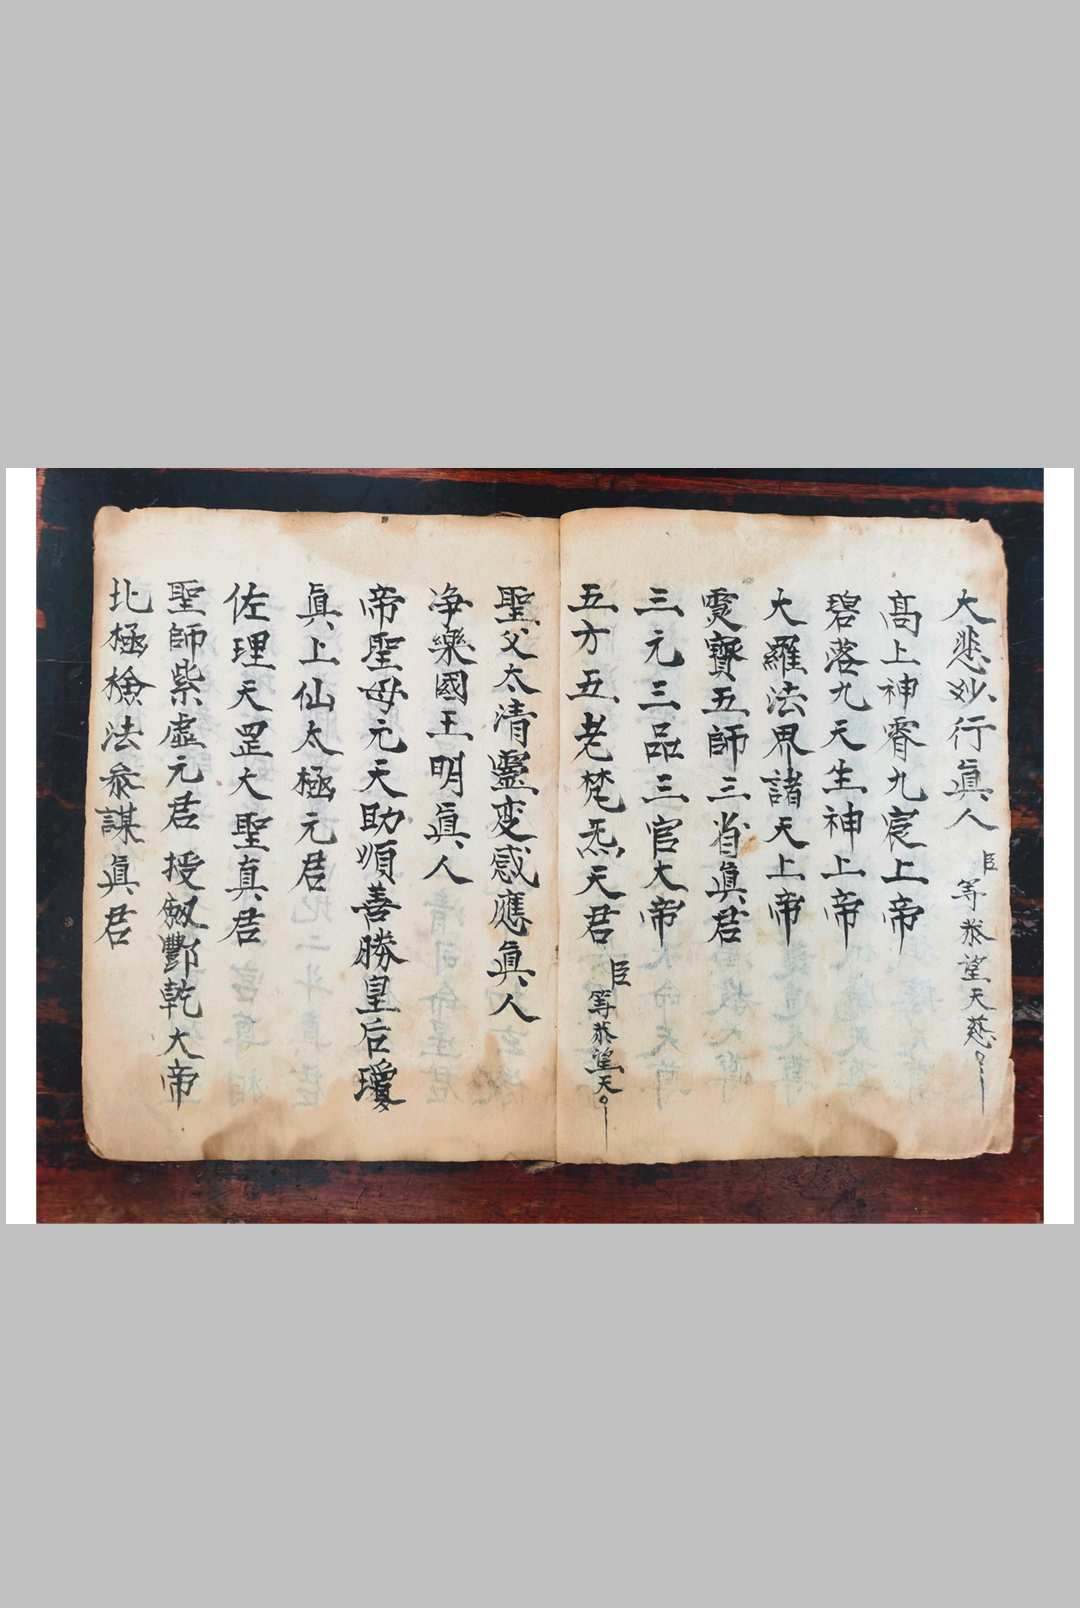 大悲妙行眞人 臣等恭望天慈
髙上神霄九宸上帝
碧落九天生神上帝
大羅法界諸天上帝
灵寳五師三省眞君
三元三品三官大帝
五方五老梵炁天君 臣等恭望天
聖父太清靈变感應眞人
净樂國王明眞人
帝聖母元天助順善勝皇后瓊
眞上仙太極元君
佐理天罡大聖真君
聖師紫虛元君 授劔酆乾大帝
北極檢法叅謀眞君